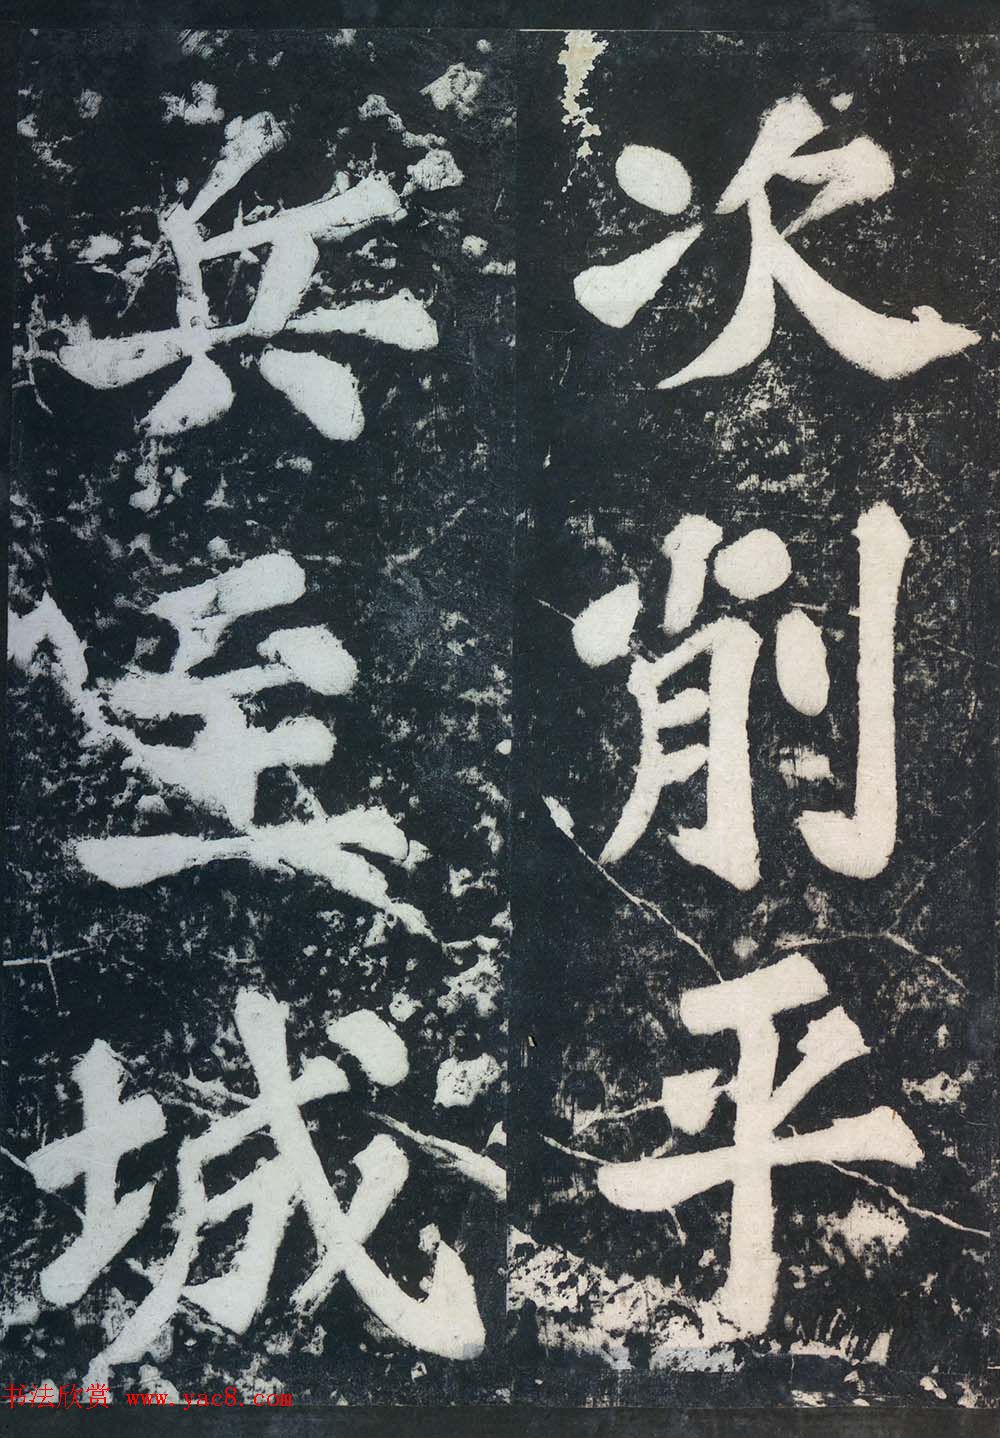 次削平
兵至城
书法欣赏 www.yac8.com